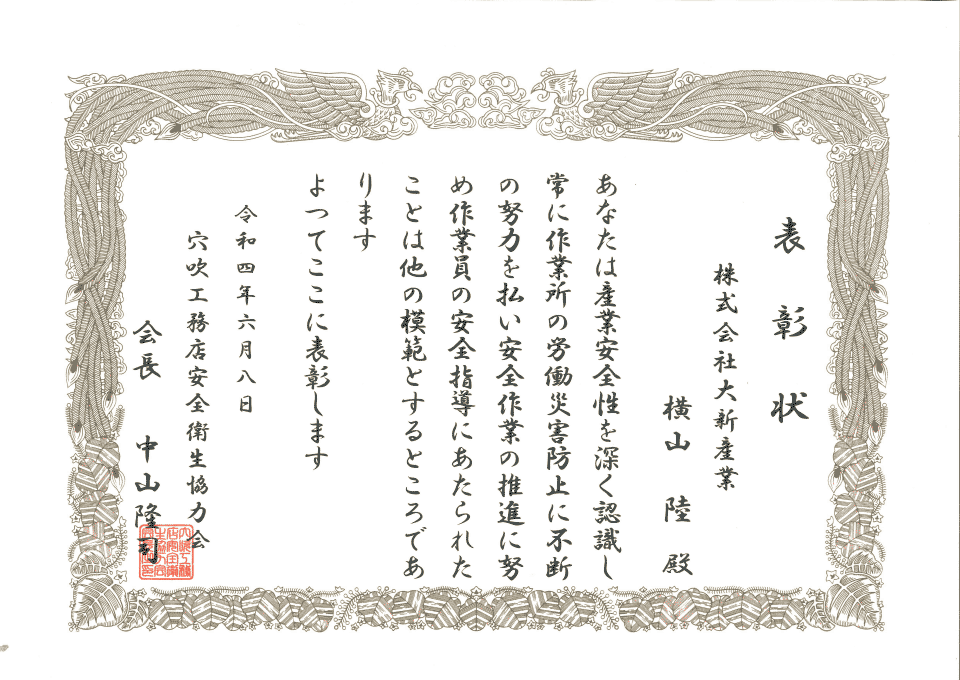 表彰状
株式会社大新産業
横山 陸 殿
あなたは産業安全性を深く認識し
常に作業所の労働災害防止に不断
の努力を払い安全作業の推進に努
め作業員の安全指導にあたられた
ことは他の模範とするところであ
ります
よつてここに表彰します
令和四年六月八日
穴吹工務店安全衛生協力会
会長 中山隆司